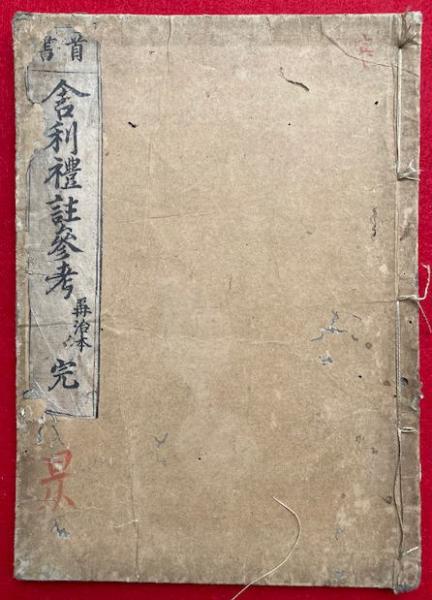 首書
舍利禮註參考 再治本 完